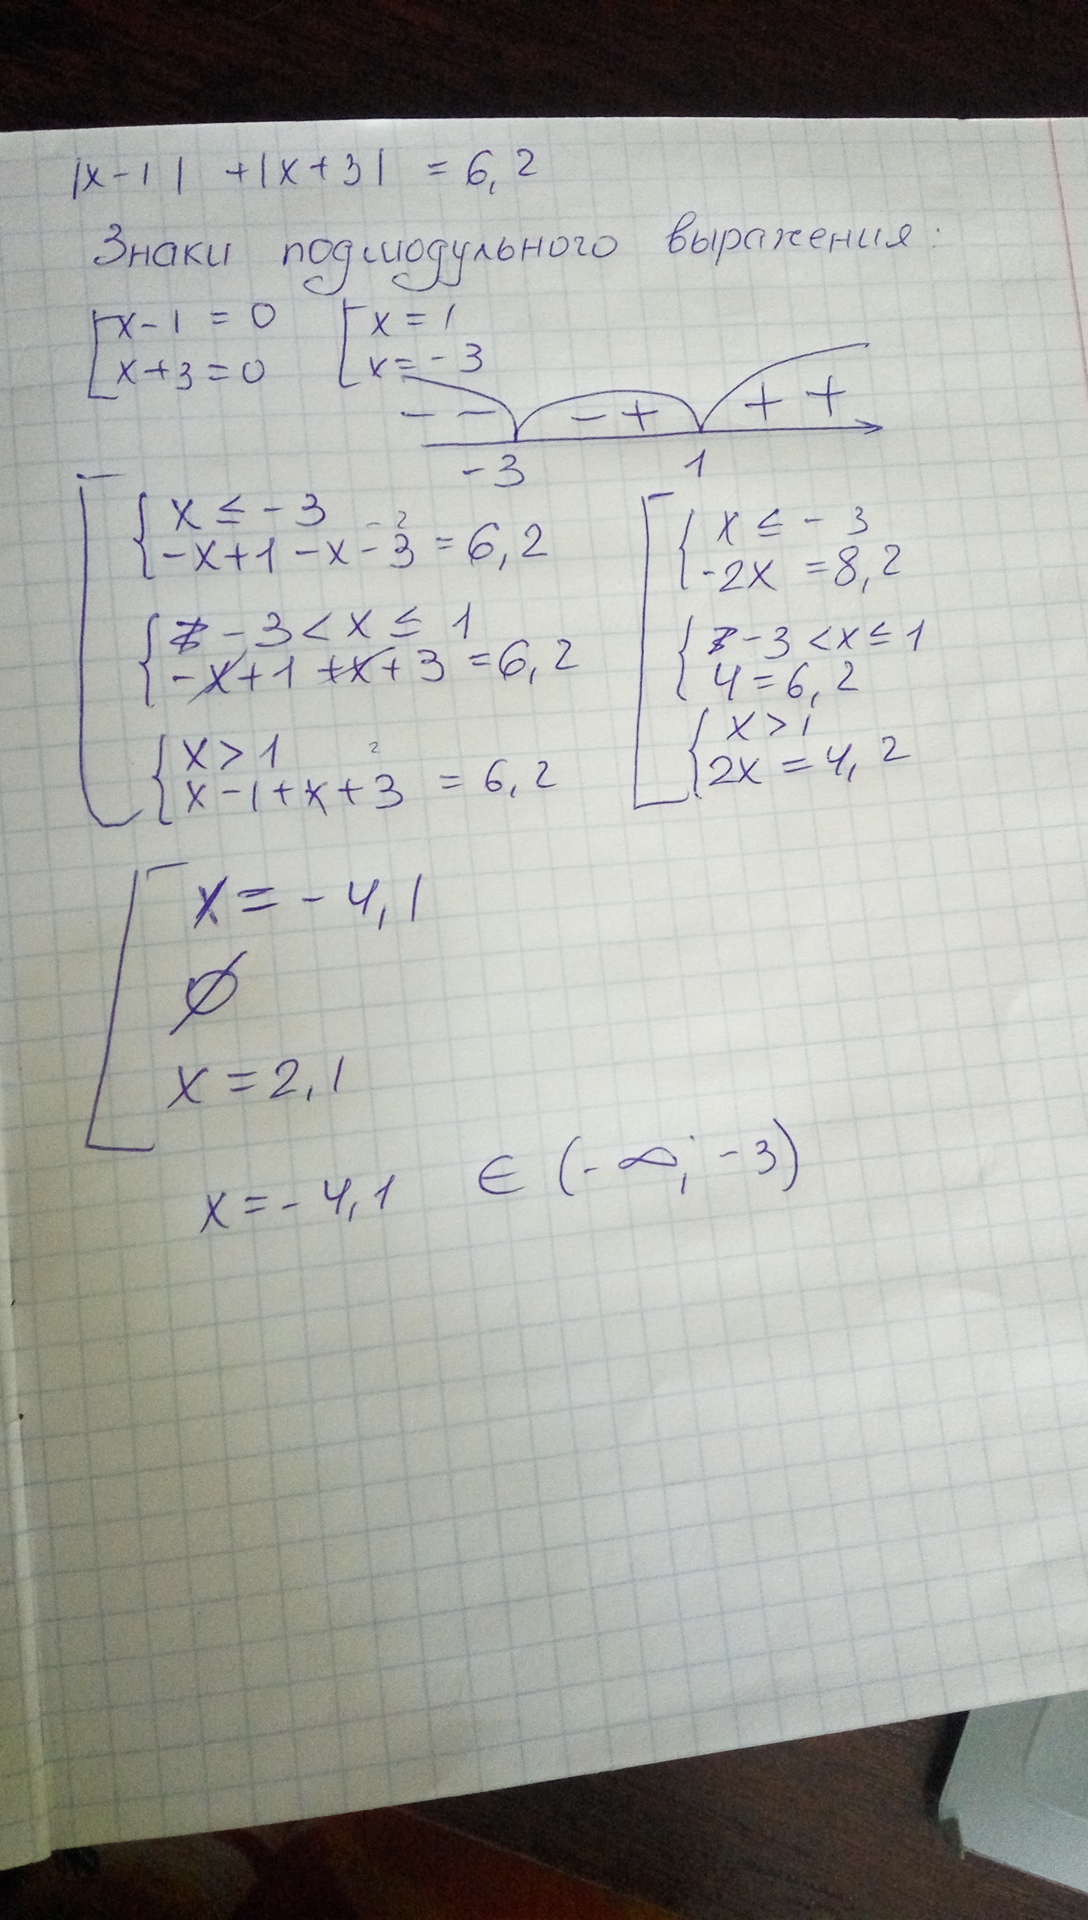 |x-1| + |x+3| = 6,2
Знаки подмодульного выражения:
[ x-1 = 0 [ x = 1
x+3 = 0 x = -3
- - - + + +
-3 1
[ { x ≤ -3
-x+1-x-3 = 6,2
-2
{ -3 < x ≤ 1
-x+1+x+3 = 6,2
{ x > 1
x-1+x+3 = 6,2
2
[ { x ≤ -3
-2x = 8,2
{ -3 < x ≤ 1
4 = 6,2
{ x > 1
2x = 4,2
[ x = -4,1
∅
x = 2,1
x = -4,1 ∈ (-∞; -3)